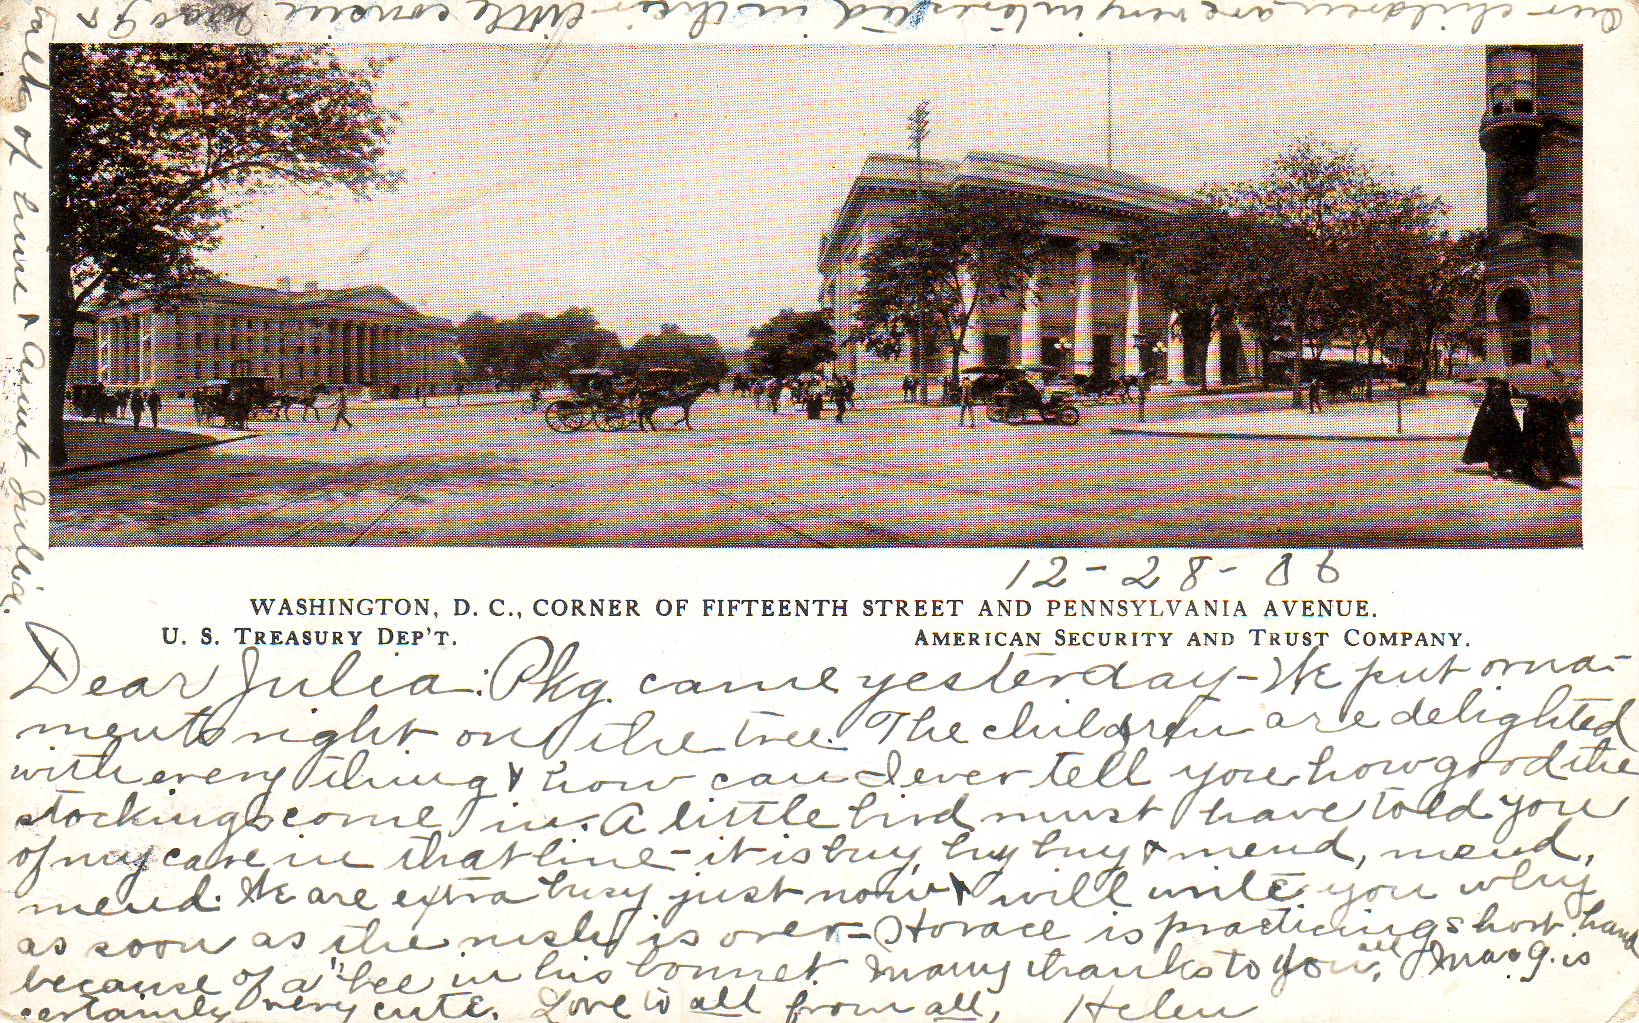 12-28-06
WASHINGTON, D. C., CORNER OF FIFTEENTH STREET AND PENNSYLVANIA AVENUE.
U. S. TREASURY DEP'T.
AMERICAN SECURITY AND TRUST COMPANY.
Dear Julia: Pkg. came yesterday - We put orna-
ments right on the tree. The children are delighted
with every thing & how can I ever tell you how good the
stockings come in. A little bird must have told you
of my care in that line - it is buy, buy buy & mend, mend,
mend. We are extra busy just now & will write you why
as soon as the rush is over - Horace is practicing short hand
because of a "bee in his bonnet. Many thanks to you all, Marg. is
certainly very cute. Love to all from all, Helen
Our children are very interested in their little cousin Marg &
talk of him & Aunt Julia.